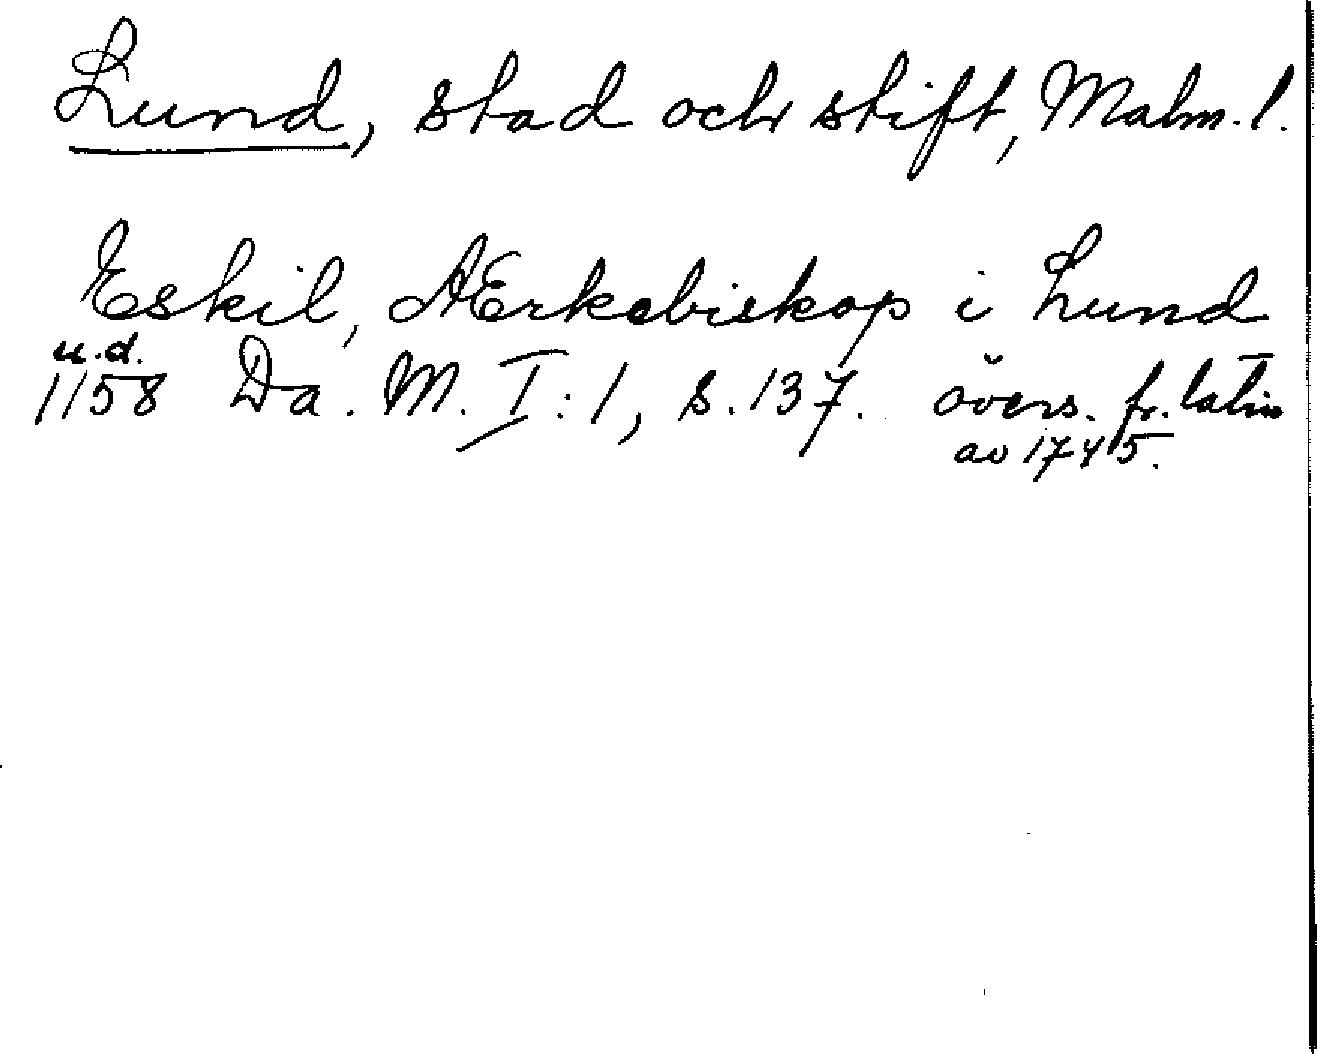 Lund, stad och stift, Malm. l.
Eskil, AErkebiskop i Lund
u.d.
1158 Da. M. I:1, s. 137. övers. fr. latin
av 1745.